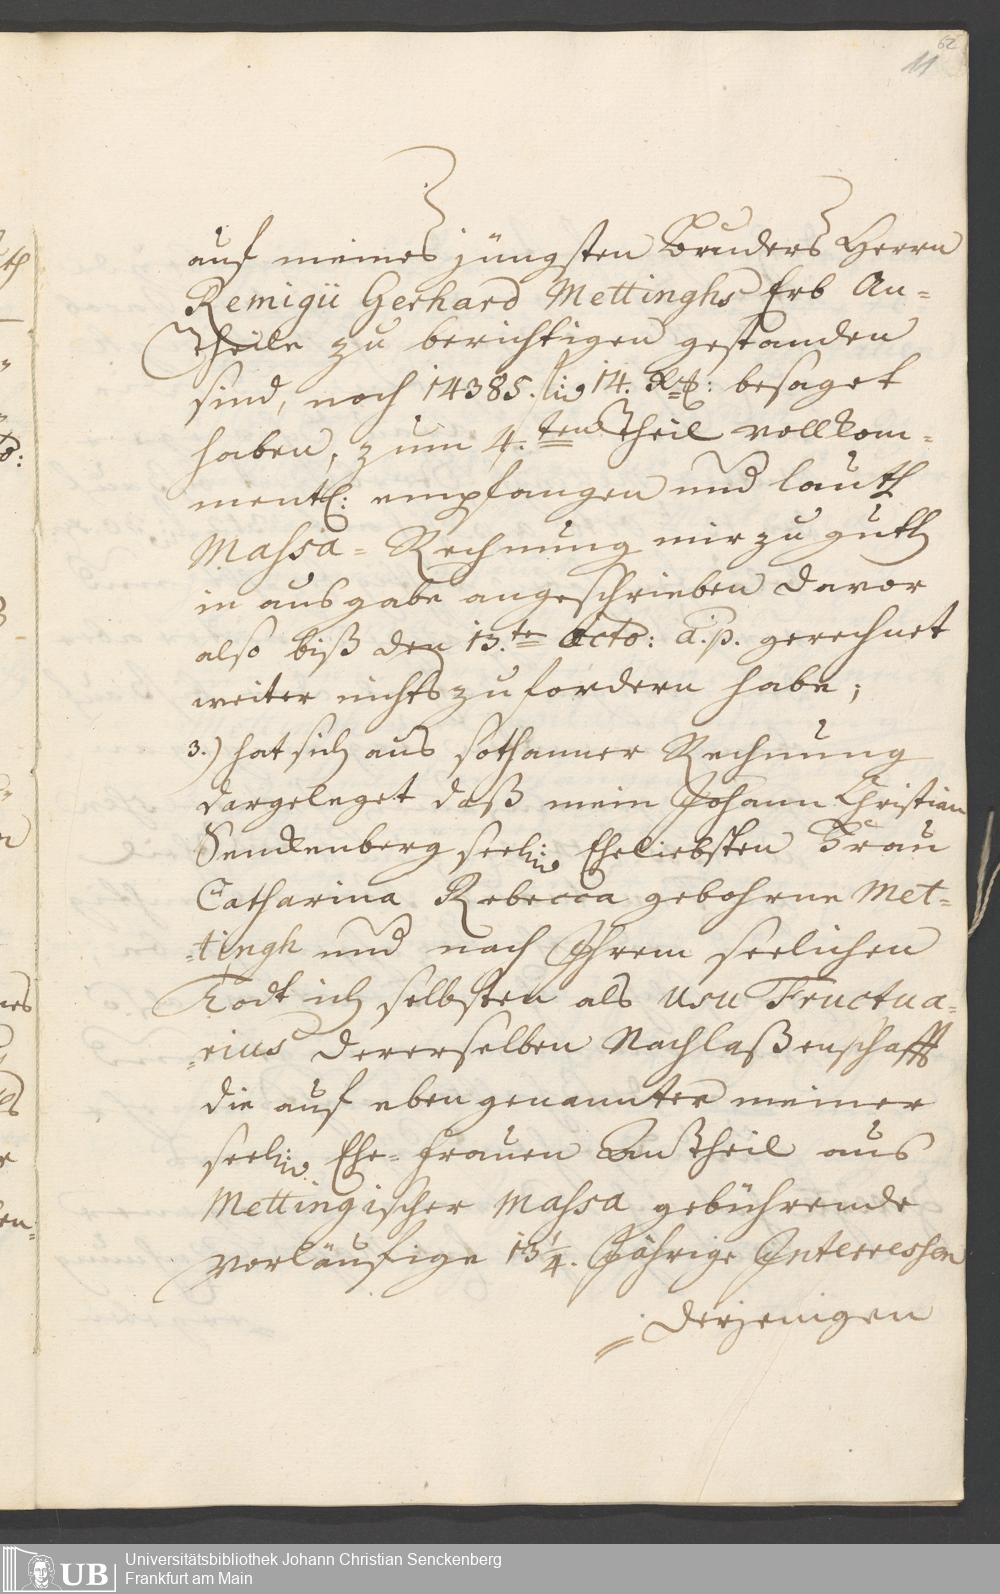 62
11
auf meines jüngsten Bruders Herrn
Remigii Gerhard Mettinghs Erb An=
Theile zu berichtigen gestanden
sind, noch 14385. 14. besaget
haben, zum 4.ten Theil vollkom=
mentl: empfangen und lauth
Massa=Rechnung mir zu guth
in ausgabe angeschrieben davor
also biß den 13.te Octo: a.p. gerechnet
weiter nichts zu fordern habe;
3.) hat sich aus sothanner Rechnung
dargeleget daß mein Johann Christian
Senckenberg seel: Eheliebsten Frau
Catharina Rebecca gebohrne Met=
=tingh und nach Ihrem seelichen
Todt ich selbsten als Usu Fructua=
=rius dererselben Nachlaßenschafft
die auf eben genannter meiner
seel: Ehe=Frauen Antheil aus
Mettingischer Massa gebührende
vorläufige 13 1/4. Jährige Interressen
derjenigen
UB
Universitätsbibliothek Johann Christian Senckenberg
Frankfurt am Main